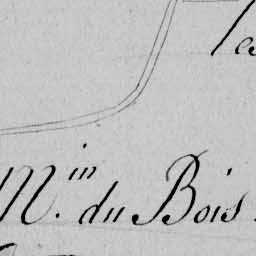 les
M.in du Bois